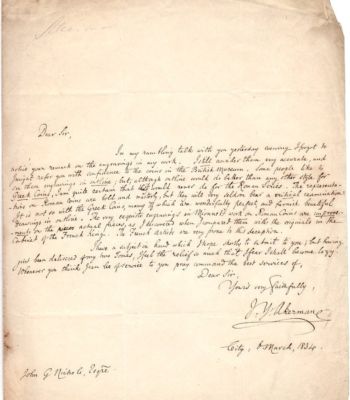 Dear Sir,
In my rambling talk with you yesterday evening I forgot to
notice your remark on the engravings in my work. I still consider them very accurate, and
might refer you with confidence to the coins in the British Museum. Some people like to
see their engravings in outline; but, although outline would do better than any other style for
Greek Coins, I am quite certain that it would never do for the Roman Series. The representa-
tions on Roman coins are bold and sketchy, but they will very seldom bear a critical examination.
It is not so with the Greek Coins, many of which are wonderfully perfect and furnish beautiful
drawings in outline. The very exquisite engravings in Mionnet's work on Roman Coins are improve-
ments on the actual pieces, as I discovered when I compared them with the originals in the
Cabinet of the French King. The French artists are very prone to this deception.
I have a subject on hand which I hope shortly to submit to you; but having
just been delivered of my two Tomes, I feel the relief so much that I fear I shall become lazy.
Whenever you think I can be of service to you pray command the best services of,
Dear Sir,
Yours very faithfully,
J. Y. Akerman
City, March, 1834.
John G. Nichols, Esqre.